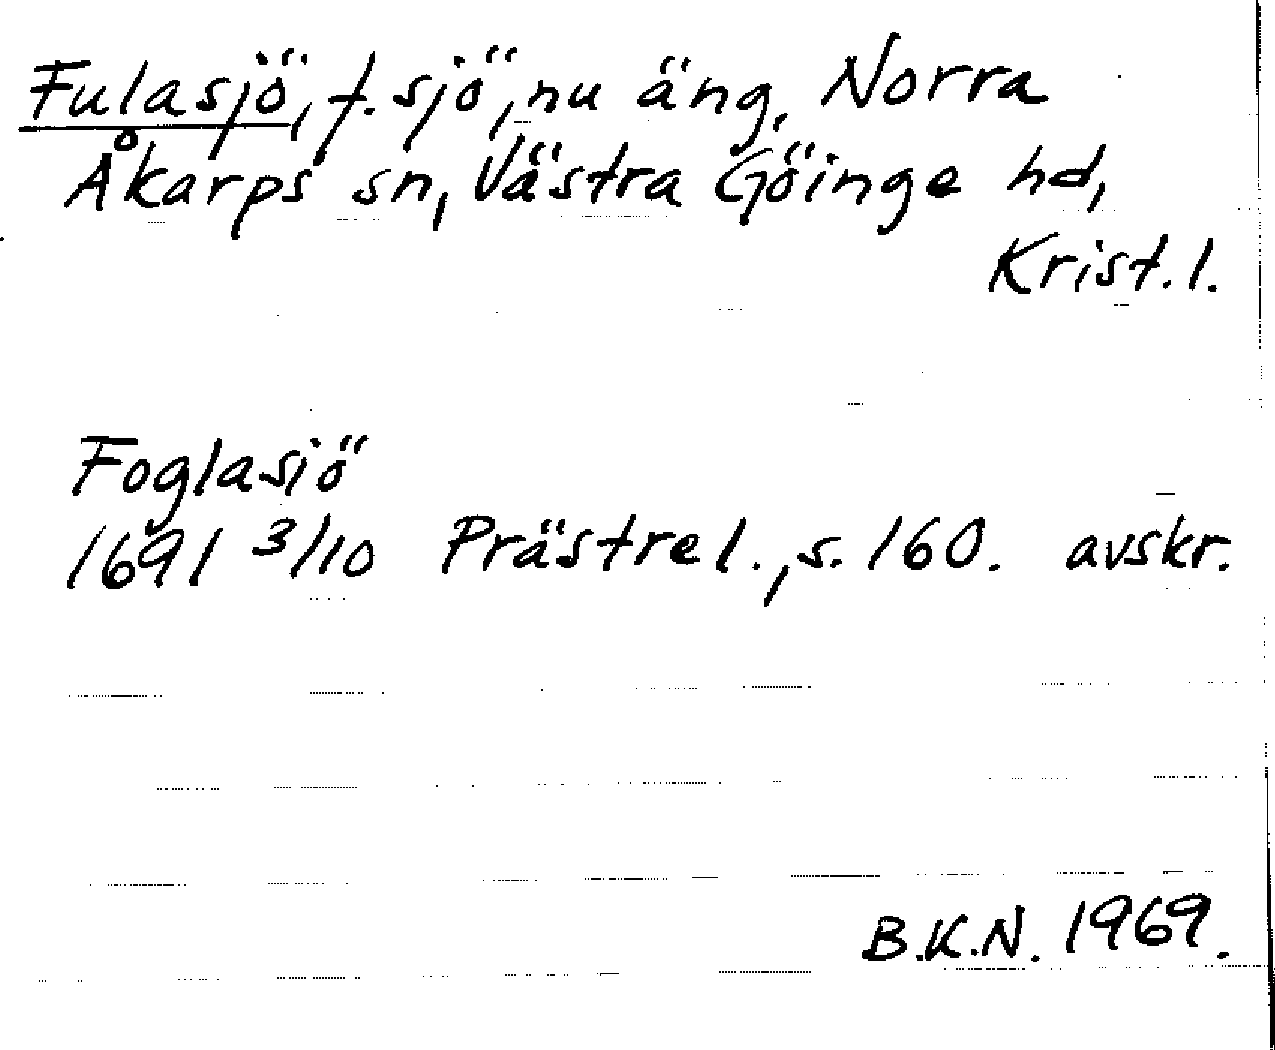 Fulasjö, f. sjö, nu äng, Norra
Åkarps sn, Västra Göinge hd,
Krist. l.
Foglasiö
1691 3/10 Prästrel., s. 160. avskr.
B.K.N. 1969.